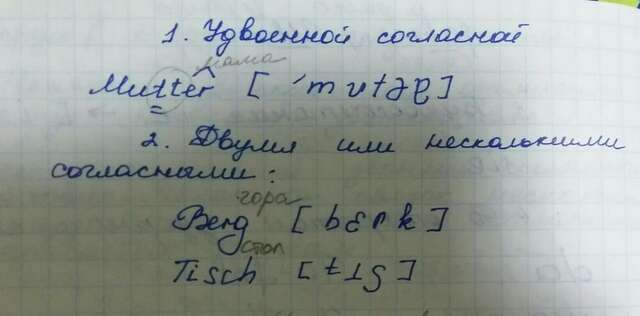 1. Удвоенной согласной
мама
Mutter [ ˈmʊtəʀ]
2. Двумя или несколькими
согласными:
гора
Berg [ bɛrk ]
стол
Tisch [ tɪʃ ]